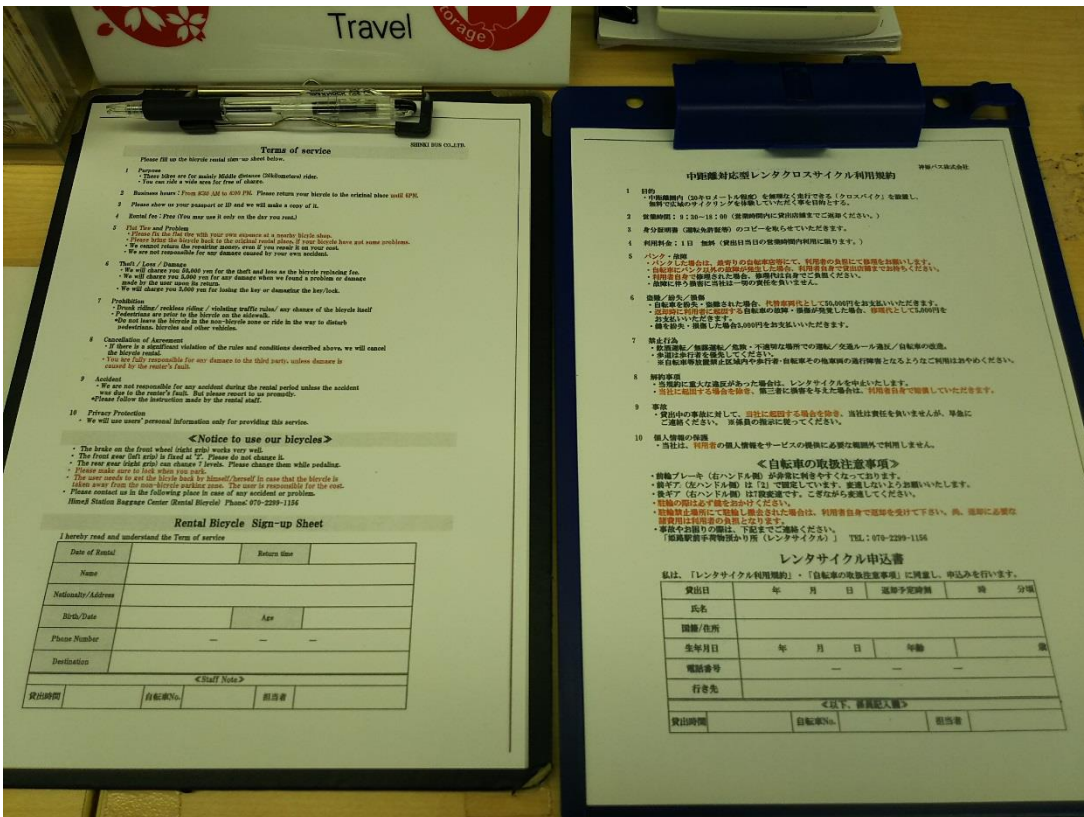 Travel
orage
SHINKI BUS CO.,LTD.
Terms of service
Please fill up the bicycle rental sign-up sheet below.
1 Purpose
・These bikes are for mainly Middle distance (20kilometers) rider.
・You can ride a wide area for free of charge.
2 Business hours : From 9:30 AM to 6:00 PM. Please return your bicycle to the original place until 6PM.
3 Please show us your passport or ID and we will make a copy of it.
4 Rental fee : Free (You may use it only on the day you rent.)
5 Flat Tire and Problem
・Please fix the flat tire with your own expence at a nearby bicycle shop.
・Please bring the bicycle back to the original rental place, if your bicycle have got some problems.
・We cannot return the repairing money, even if you repair it on your cost.
・We are not responsible for any damage caused by your own accident.
6 Theft / Loss / Damage
・We will charge you 55,000 yen for the theft and loss as the bicycle replacing fee.
・We will charge you 5,000 yen for any damage when we found a problem or damage
made by the user upon its return.
・We will charge you 3,000 yen for losing the key or damaging the key/lock.
7 Prohibition
・Drunk riding/ reckless riding / violating traffic rules/ any changes of the bicycle itself
・Pedestrians are prior to the bicycle on the sidewalk.
※Do not leave the bicycle in the non-bicycle zone or ride in the way to disturb
pedestrians, bicycles and other vehicles.
8 Cancellation of Agreement
・If there is a significant violation of the rules and conditions described above, we will cancel
the bicycle rental.
・You are fully responsible for any damage to the third party, unless damage is
caused by the renter's fault.
9 Accident
・We are not responsible for any accident during the rental period unless the accident
was due to the renter's fault. But please report to us promptly.
※Please follow the instruction made by the rental staff.
10 Privacy Protection
・We will use users' personal information only for providing this service.
≪Notice to use our bicycles≫
・The brake on the front wheel (right grip) works very well.
・The front gear (left grip) is fixed at "2". Please do not change it.
・The rear gear (right grip) can change 7 levels. Please change them while pedaling.
・Please make sure to lock when you park.
・The user needs to get the bicyle back by himself/herself in case that the bicycle is
taken away from the non-bicycle parking zone. The user is responsible for the cost.
・Please contact us in the following place in case of any accident or problem.
Himeji Station Baggage Center (Rental Bicycle) Phone: 079-2299-1156
Rental Bicycle Sign-up Sheet
I hereby read and understand the Term of service
Date of Rental Return time
Name
Nationality/Address
Birth/Date Age
Phone Number — — —
Destination
≪Staff Note≫
貸出時間 自転車No. 担当者
神姫バス株式会社
中距離対応型レンタクロスサイクル利用規約
1 目的
・中距離圏内(20キロメートル程度)を無理なく走行できる「クロスバイク」を設置し、
無料で広域のサイクリングを体験していただく事を目的とする。
2 営業時間:9:30~18:00(営業時間内に貸出店舗までご返却ください。)
3 身分証明書(運転免許証等)のコピーを取らせていただきます。
4 利用料金:1日 無料(貸出日当日の営業時間内利用に限ります。)
5 パンク・故障
・パンクした場合は、最寄りの自転車店等にて、利用者の負担にて修理をお願いします。
・自転車にパンク以外の故障が発生した場合、利用者自身で貸出店舗までお持ちください。
・利用者自身で修理された場合、修理代は自身でご負担ください。
・故障に伴う損害に当社は一切の責任を負いません。
6 盗難/紛失/損傷
・自転車を紛失・盗難された場合、代替車両代として55,000円をお支払いいただきます。
・返却時に利用者に起因する自転車の故障・損傷が発覚した場合、修理代として5,000円を
お支払いいただきます。
・鍵を紛失・損傷した場合3,000円をお支払いいただきます。
7 禁止行為
・飲酒運転/無謀運転/危険・不適切な場所での運転/交通ルール違反/自転車の改造。
・歩道は歩行者を優先してください。
※自転車等放置禁止区域内や歩行者・自転車その他車両の通行障害となるようなご利用はおやめください。
8 解約事項
・当規約に重大な違反があった場合は、レンタサイクルを中止いたします。
・当社に起因する場合を除き、第三者に損害を与えた場合は、利用者自身で賠償していただきます。
9 事故
・貸出中の事故に対して、当社に起因する場合を除き、当社は責任を負いませんが、早急に
ご連絡ください。 ※係員の指示に従ってください。
10 個人情報の保護
・当社は、利用者の個人情報をサービスの提供に必要な範囲外で利用しません。
≪自転車の取扱注意事項≫
・前輪ブレーキ(右ハンドル側)が非常に利きやすくなっております。
・前ギア(左ハンドル側)は「2」で固定しています。変速しないようお願いいたします。
・後ギア(右ハンドル側)は7段変速です。こぎながら変速してください。
・駐輪の際は必ず鍵をおかけください。
・駐輪禁止場所にて駐輪し撤去された場合は、利用者自身で返却を受けて下さい。尚、返却に必要な
諸費用は利用者の負担となります。
・事故やお困りの際は、下記までご連絡ください。
「姫路駅前手荷物預かり所(レンタサイクル)」 TEL:079-2299-1156
レンタサイクル申込書
私は、「レンタサイクル利用規約」・「自転車の取扱注意事項」に同意し、申込みを行います。
貸出日 年 月 日 返却予定時刻 時 分頃
氏名
国籍/住所
生年月日 年 月 日 年齢 歳
電話番号 — — —
行き先
≪以下、係員記入欄≫
貸出時間 自転車No. 担当者